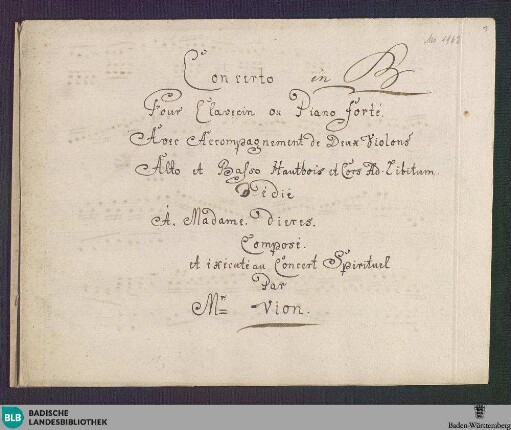 Mus 1968
Concerto in B
Pour Clavecin ou Piano forté.
Avec Accompagnement de Deux Violons
Alto et Basso Hautbois et Cors Ad-Libitum.
Dédié
À. Madame. Dieres.
Composé.
et éxécuté au Concert Spirituel
Par
Mr Vion.
BLB
BADISCHE
LANDESBIBLIOTHEK
Baden-Württemberg